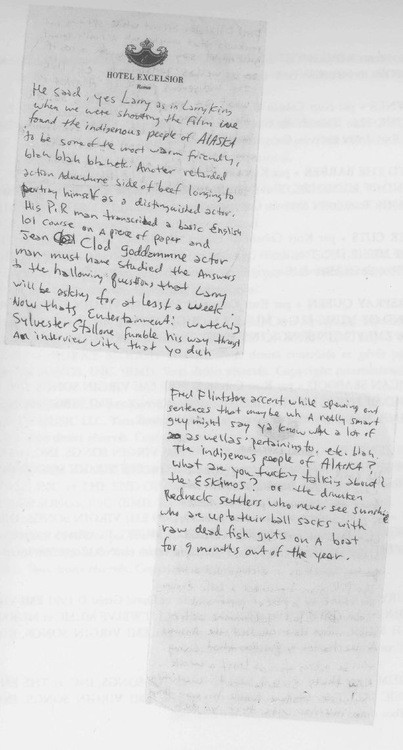 HOTEL EXCELSIOR
Rome
He said, yes Larry as in Larry King
when we were shooting the film ive
found the indigenous people of ALASKA
to be some of the most warm friendly,
blah blah blahetc. Another retarded
action Adventure side of beef longing to
portray himself as a distinguished actor.
His P.R man transcribed a basic English
lot course on A piece of paper and
Jean Clod goddammne actor
man must have studied the Answers
to the hallowing questions that Larry
will be asking for at least a week.
Now thats Entertainment! watching
Sylvester Stallone fumble his way through
An interview with that yo duh
Fred Flintstone accent while spewing out
sentences that maybe uh A really smart
guy might say ya know with a lot of
as wellas pertaining to. etc. blah
The indigenous people of ALASKA?
what are you fucking talking about?
the Eskimos? or the drunken
Redneck settlers who never see sunshine
who are up to their ball sacks with
raw dead fish guts on A boat
for 9 months out of the year.